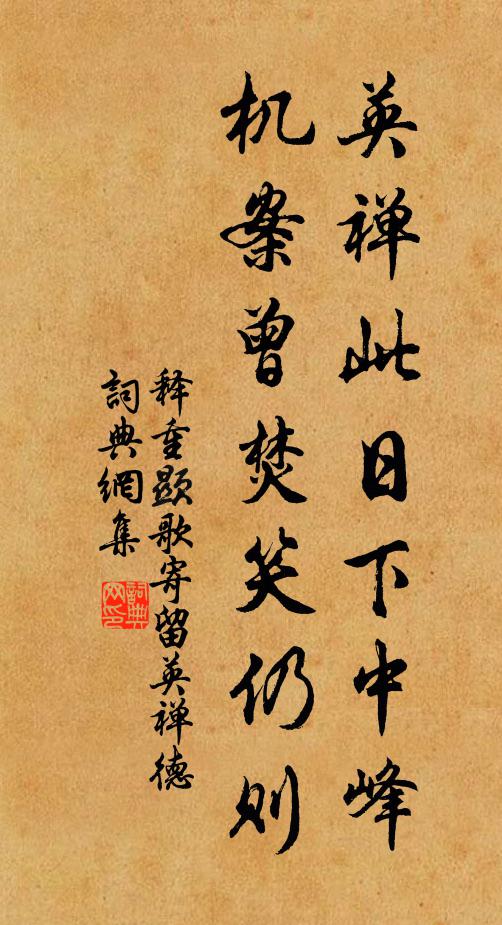 英禅此日下中峰
机案曾焚笑仍则
释重顕歌寄留英禅德
詞典網集
詞典
网印